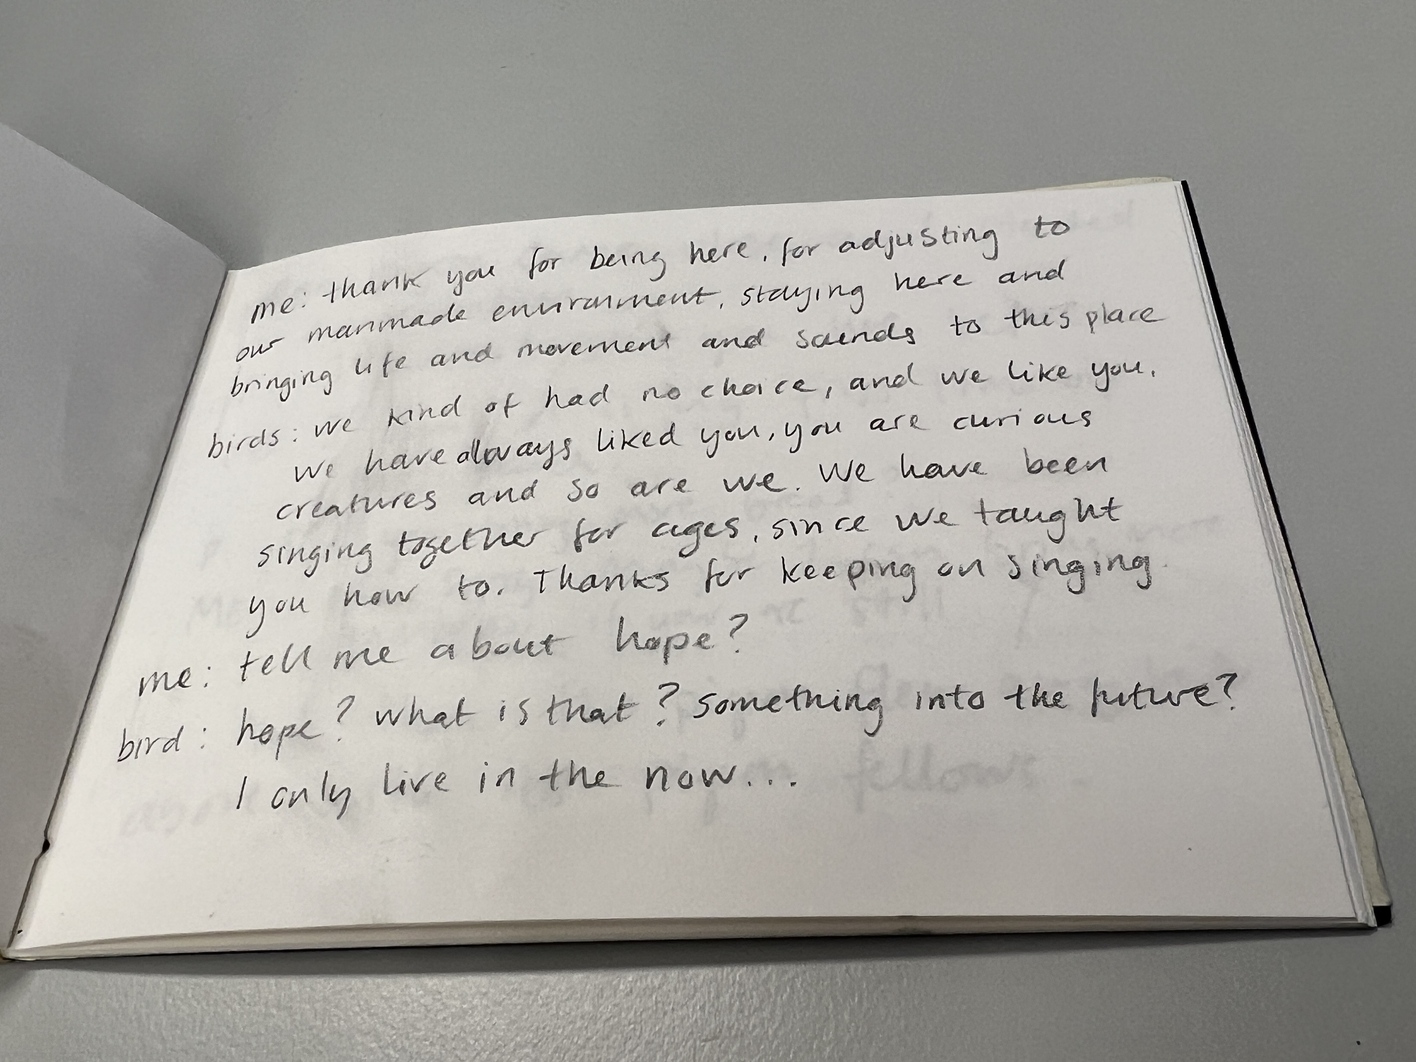 me: thank you for being here, for adjusting to
our manmade environment, staying here and
bringing life and movement and sounds to this place
birds: we kind of had no choice, and we like you,
we have always liked you, you are curious
creatures and so are we. We have been
singing together for ages, since we taught
you how to. Thanks for keeping on singing.
me: tell me about hope?
bird: hope? what is that? something into the future?
I only live in the now...